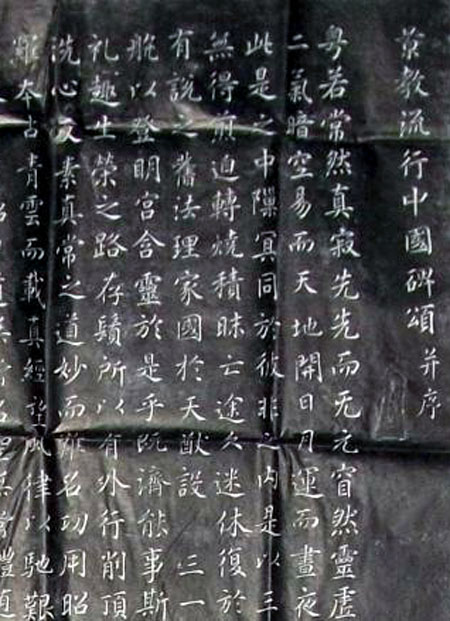 景教流行中國碑頌并序
粵若常然真寂先先而无元窅然靈虛
二氣暗空易而天地開日月運而晝夜
此是之中隟冥同於彼非之內是以三
無得煎迫轉燒積昧亡途久迷休復於
有說之舊法理家國於天猷設 三一
舩以登明宮含靈於是乎既濟能事斯
礼趣生榮之路存鬚所以有外行削頂
洗心反素真常之道妙而難名功用昭
羅本占青雲而載真經望風律以馳艱